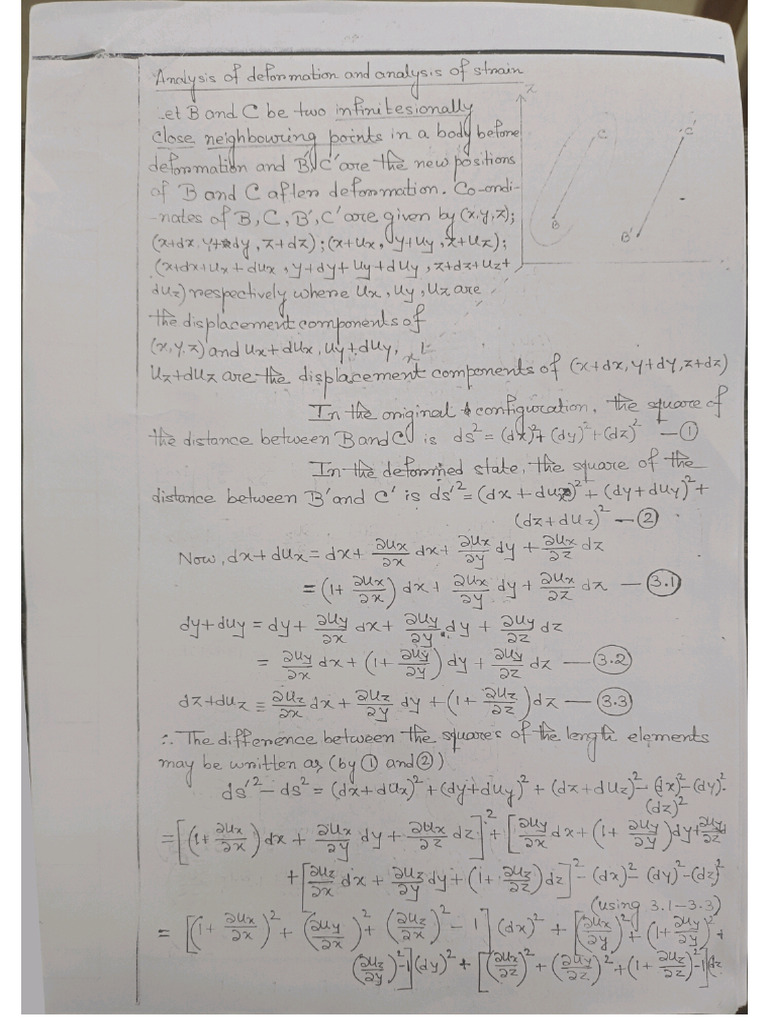 Analysis of deformation and analysis of strain
et B and C be two infinitesionally
close neighbouring points in a body before
deformation and B', C' are the new positions
of B and C after deformation. Co-ordi-
-nates of B, C, B', C' are given by (x,y,z);
(x+dx, y+dy, z+dz); (x+ux, y+uy, z+uz);
(x+dx+ux+dux, y+dy+uy+duy, z+dz+uz+
duz) respectively where ux, uy, uz are
the displacement components of
(x,y,z) and ux+dux, uy+duy,
uz+duz are the displacement components of (x+dx, y+dy, z+dz)
z
C
C'
B
B'
x
In the original configuration, the square of
the distance between B and C is ds² = (dx)²+(dy)²+(dz)² — ①
In the deformed state, the square of the
distance between B' and C' is ds'² = (dx+dux)²+(dy+duy)²+
(dz+duz)² — ②
Now, dx+dux = dx + ∂ux/∂x dx + ∂ux/∂y dy + ∂ux/∂z dz
= (1+ ∂ux/∂x) dx + ∂ux/∂y dy + ∂ux/∂z dz — (3.1)
dy+duy = dy + ∂uy/∂x dx + ∂uy/∂y dy + ∂uy/∂z dz
= ∂uy/∂x dx + (1+ ∂uy/∂y) dy + ∂uy/∂z dz — (3.2)
dz+duz = ∂uz/∂x dx + ∂uz/∂y dy + (1+ ∂uz/∂z) dz — (3.3)
∴ The difference between the squares of the length elements
may be written as (by ① and ②)
ds'² - ds² = (dx+dux)² + (dy+duy)² + (dz+duz)² - (dx)² - (dy)² -
(dz)²
= [(1+ ∂ux/∂x) dx + ∂ux/∂y dy + ∂ux/∂z dz]² + [∂uy/∂x dx + (1+ ∂uy/∂y) dy + ∂uy/∂z
+ [∂uz/∂x dx + ∂uz/∂y dy + (1+ ∂uz/∂z) dz]² - (dx)² - (dy)² - (dz)²
(using 3.1-3.3)
= [(1+ ∂ux/∂x)² + (∂uy/∂x)² + (∂uz/∂x)² - 1] (dx)² + [(∂ux/∂y)² + (1+ ∂uy/∂y)² +
(∂uz/∂y)² - 1] (dy)² + [(∂ux/∂z)² + (∂uy/∂z)² + (1+ ∂uz/∂z)² - 1] (dz